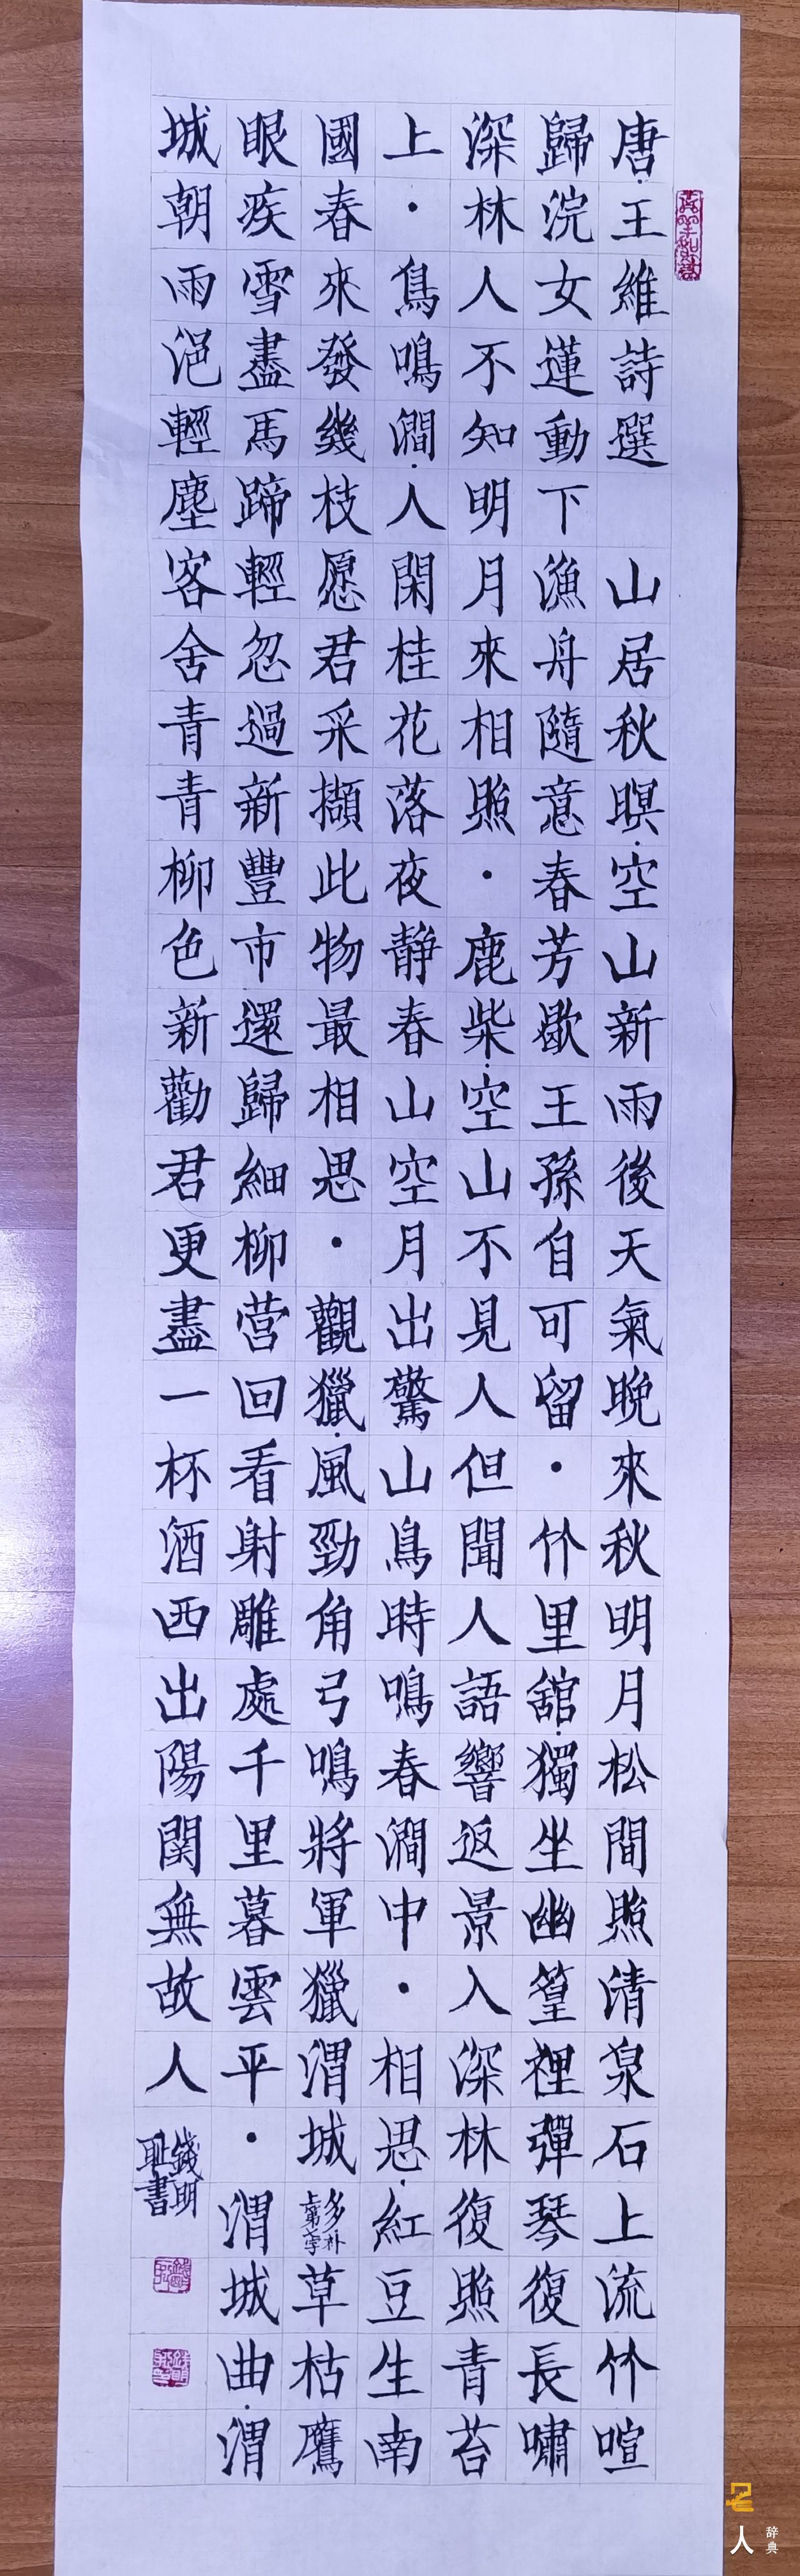 唐·王維詩選 山居秋暝·空山新雨後天氣晚來秋明月松間照清泉石上流竹喧
歸浣女蓮動下漁舟隨意春芳歇王孫自可留·竹里舘·獨坐幽篁裡彈琴復長嘯
深林人不知明月來相照·鹿柴·空山不見人但聞人語響返景入深林復照青苔
上·鳥鳴澗·人閑桂花落夜静春山空月出驚山鳥時鳴春澗中·相思·紅豆生南
國春來發幾枝愿君采擷此物最相思·觀獵·風勁角弓鳴將軍獵渭城草枯鷹
眼疾雪盡馬蹄輕忽過新豐市還歸細柳营回看射雕處千里暮雲平·渭城曲·渭
城朝雨浥輕塵客舍青青柳色新勸君更盡一杯酒西出陽関無故人
錢明
耻書
名人
辞典